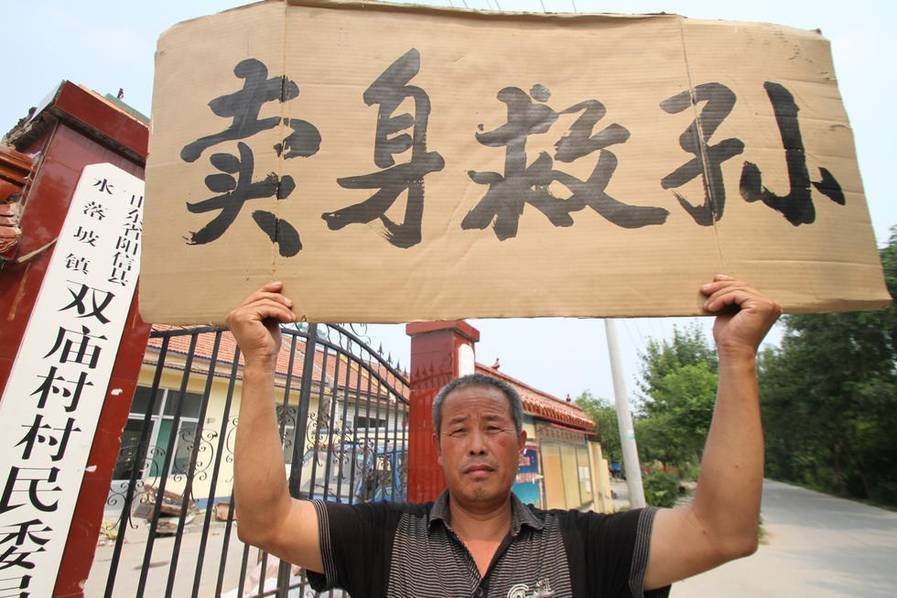 卖身救孙
山东省阳信县
水落坡镇
双庙村村民委员